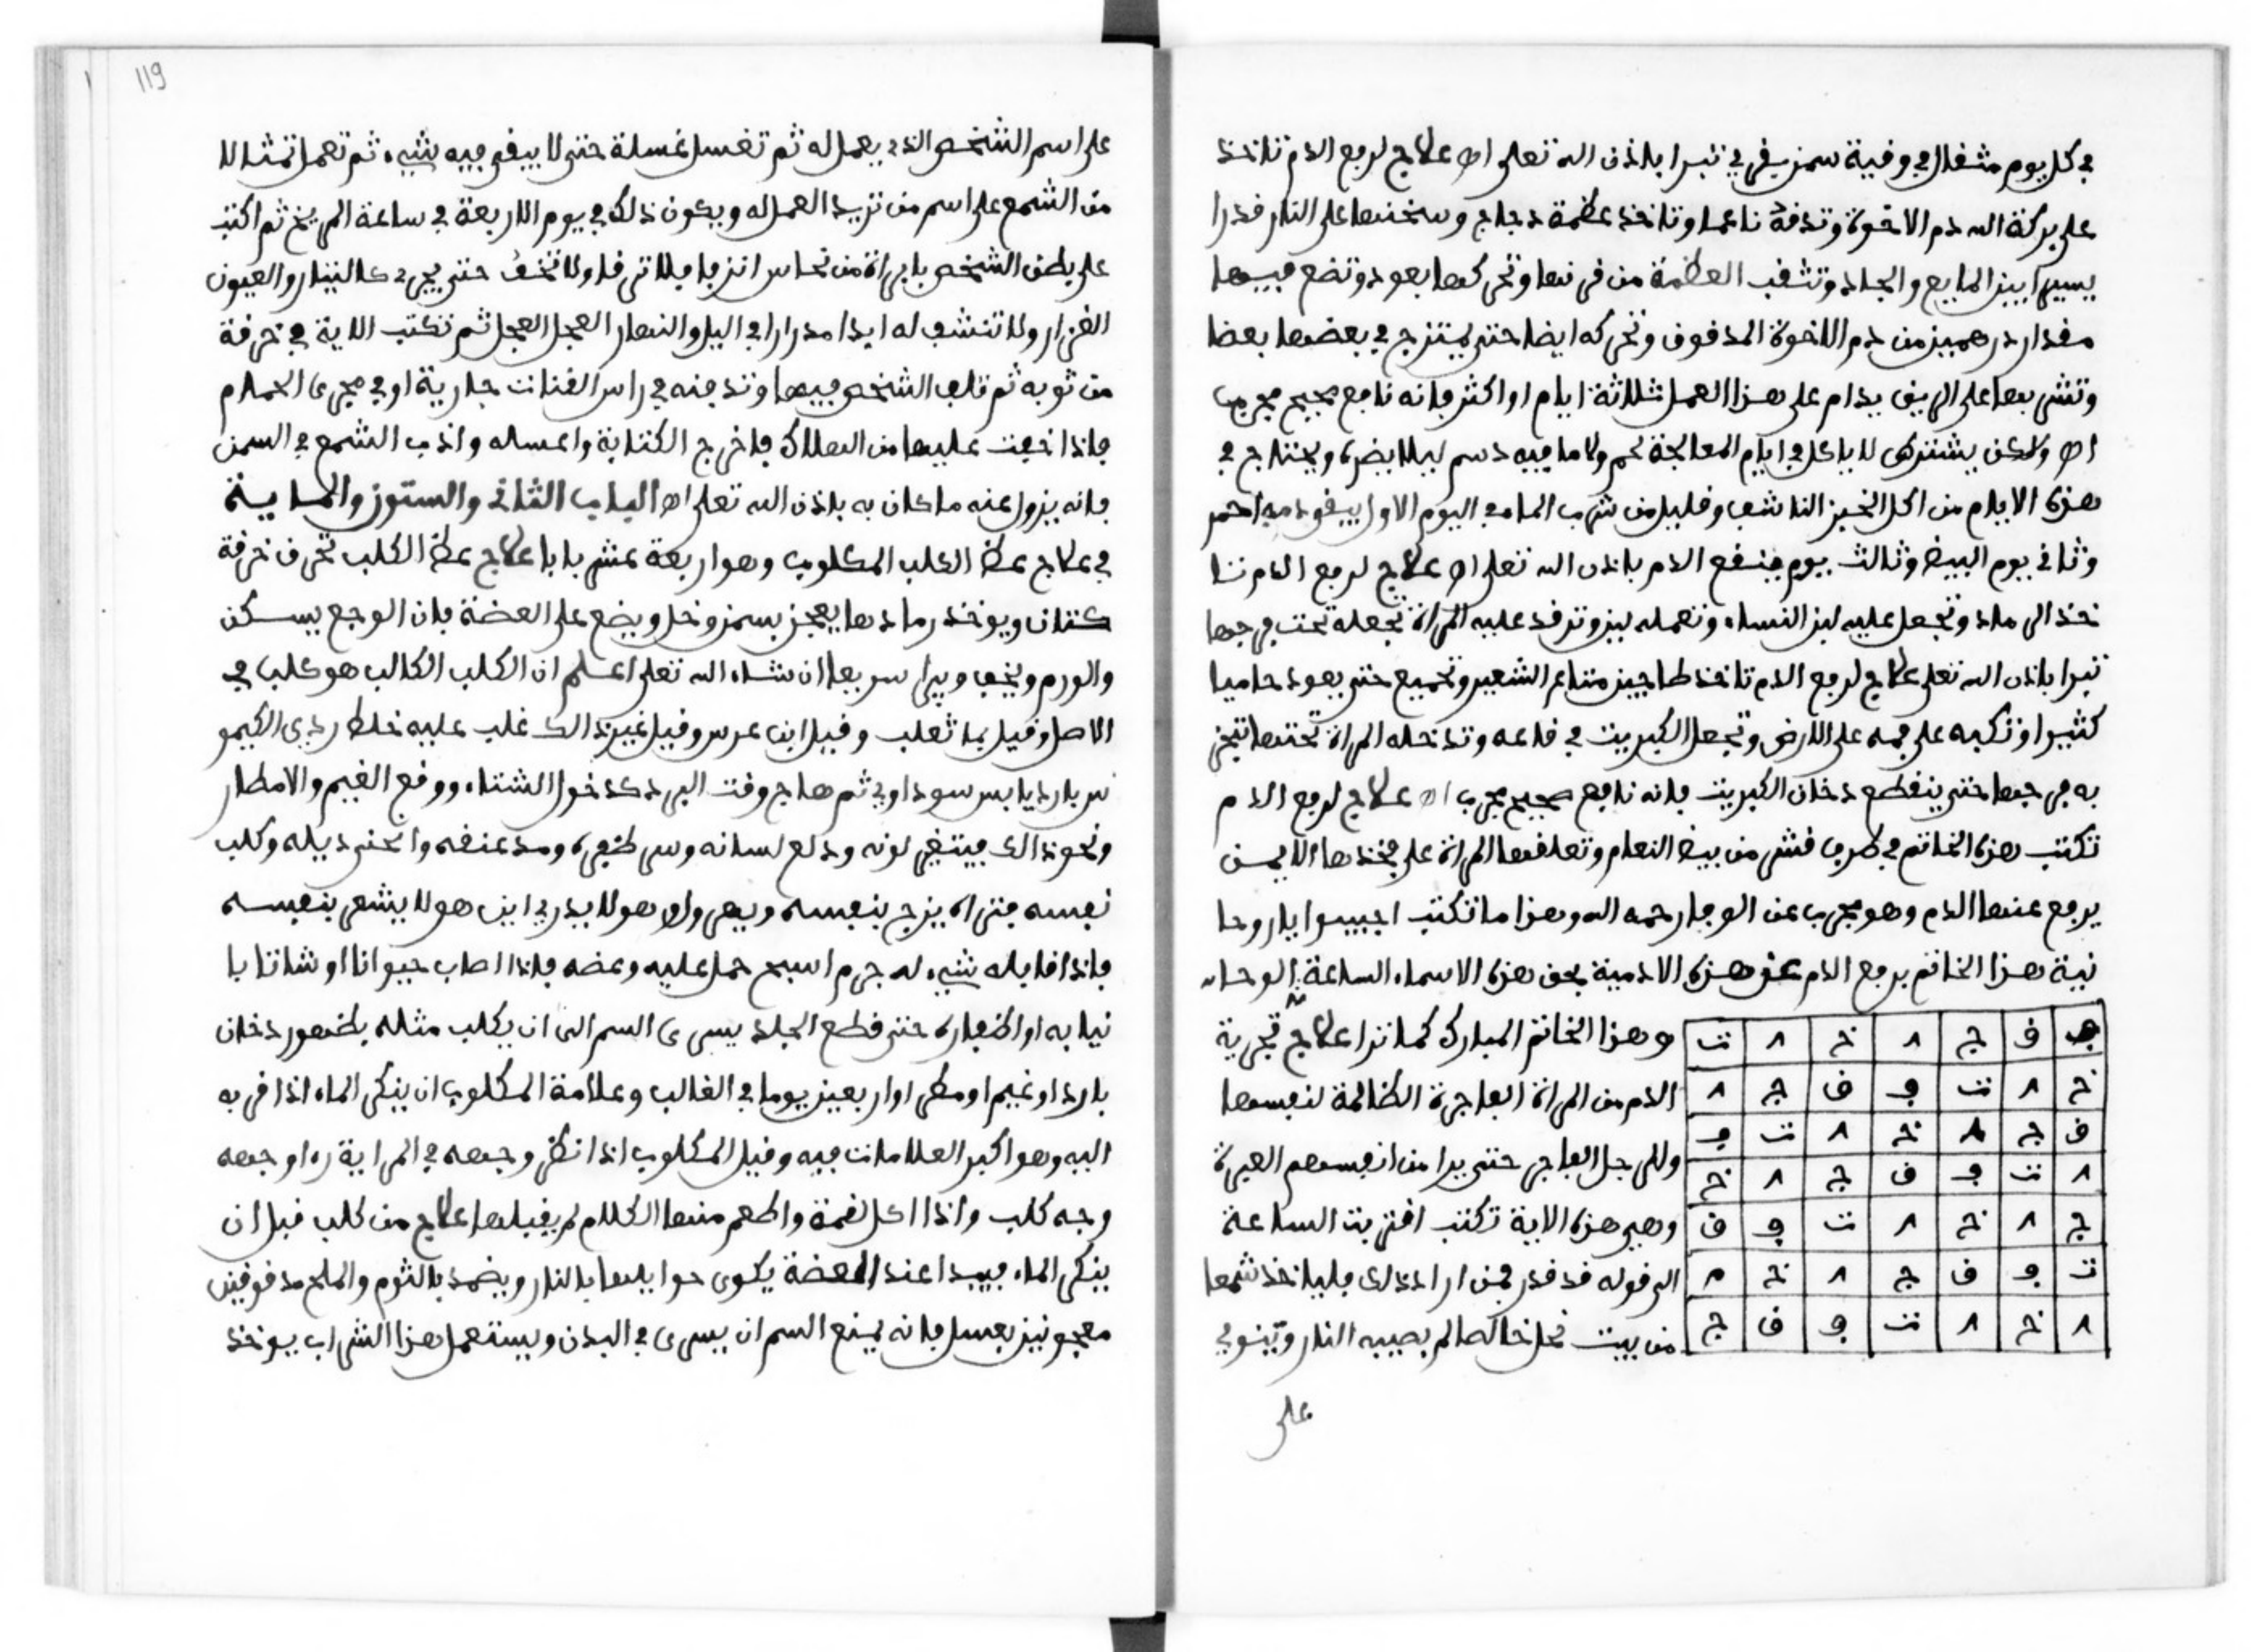 في كل يوم مثقال في وقية سمن بقري تبرا باذن الله تعلى اه علاج لرفع الدم تاخذ
على بركة الله دم الاخوة وتدقه ناعما وتاخذ عظمة دجاج وسخنها على النار قدرا
يسيرا بين المايع والجامد وتثقب العظمة من قرنها وتحركها بعود وتضع فيها
مقدار درهمين من دم الاخوة المدقوق وتحركه ايضا حتى يمتزج في بعضها بعضا
وتشربها على الريق يدام على هذا العمل ثلاثة ايام او اكثر فانه نافع صحيح مجرب
اه ولاكن يشترى لا ياكل في ايام المعالجة لحم ولا ما فيه دسم ليلا يضره ويحتاج في
هذه الايام من اكل الخبز الناشف وقليل من شرب الماء في اليوم الاول احمر
وثاني يوم البيض وثالث يوم ينقع الدم باذن الله تعلى اه علاج لرفع الدم تا
خذ الرماد وتجعل عليه لبن النساء وتعمله وترقد عليه المراة تجعله تحت فرجها
تبرا باذن الله تعلى علاج لرفع الدم تاخذ طاجين متاع الشعير وتحميه حتى يعود حاميا
كثيرا وتكبه على فمه على الارض وتجعل الكبريت في قاعه وتدخله المراة تحتها تبخر
به فرجها حتى ينقطع دخان الكبريت فانه نافع صحيح مجرب اه علاج لرفع الدم
تكتب هذه الخاتم في طرف قشر من بيض النعام وتعلقها المراة على فخذها الايمن
يرفع عنها الدم وهو مجرب عن الوفا رحمه الله وهذا ما تكتب اجيبوا يا روحا
نية هذا الخاتم برفع الدم عن هذه الادمية بحق هذه الاسماء الساعة الوحا
وهذا الخاتم المبارك كما ترا علاج تجرية
الدم من المراة الفاجرة الظالمة لنفسها
وللرجل الفاجر حتى يرا من انفسهم العبرة
وهي هذه الاية تكتب اقتربت الساعة
الى قوله قد قدر فمن اراد ذلك فلياخذ شمعا
من بيت نحل خالطا لم يصيبه النار وتنوي
ف ق ج ا خ ا ت
خ ا ت ف ق ج ا
ق ج ا خ ا ت ف
ا ت ف ق ج ا خ
ج ا خ ا ت ف ق
ت ف ق ج ا خ ا
ا خ ا ت ف ق ج
على
119
على اسم الشخص الذي يعمل له ثم تغسل غسلة حتى لا يبقى فيه شيء ثم تعمل تمثالا
من الشمع على اسم من تريد العمل له ويكون ذلك في يوم الاربعة في ساعة المريخ ثم اكتب
على بطن الشخص بابراة من نحاس انزفا فلا ترقا ولا تخف حتى يجري كالتيار والعيون
الغزار ولا تنشف له ابدا مدرارا في اليل والنهار العجل العجل ثم تكتب الاية في خرقة
من ثوبه ثم تلف الشخص فيها وتدفنه في راس القنات جارية او في مجرى الحمام
فاذا خفت عليها من الهلاك فاخرج الكتابة واغسله واذب الشمع في السمن
فانه يزول عنه ما كان به باذن الله تعلى اه الباب الثاني والستون والماية
في علاج عض الكلب المكلوب وهو اربعة عشر بابا علاج عض الكلب تحرق خرقة
كتان ويوخذ رمادها يعجن بسمن وخل ويضع على العضة فان الوجع يسكن
والورم ويخف ويبرا سريعا ان شاء الله تعلى اعلم ان الكلب الكالب هو كلب في
الاصل وقيل بل ثعلب وقيل ابن عرس وقيل غير ذالك غلب عليه خلط ردي الكيمو
س بارد يابس سوداوي ثم هاج وقت البرد كدخول الشتاء ووقع الغيم والامطار
ونحو ذالك فيتغير لونه ودلع لسانه ومد عنقه وانحنى ديله وكلب
نفسه فتراه يزج بنفسه ويهرول هو لا يدري اين هو لا يشعر بنفسه
فاذا قابله شيء له جرم اسبح حمل عليه وعضه فاذا اصاب حيوانا او شاتا با
نيابه او اظفاره حتى قطع الجلد يسرى السم الى ان يكلب مثله بظهور دخان
بارد او غيم او مطر او اربعين يوما في الغالب وعلامة المكلوب ان ينكر الماء اذا قربه
اليه وهو اكبر العلامات فيه وقيل المكلوب اذا نظر وجهه في المراية راء وجهه
وجه كلب واذا اكل لقمة واطعم منها الكلام لم يقبلها علاج من كلب قبل ان
ينكر الماء فيبدا عند العضة يكوى حواليها بالنار ويضمد بالثوم والملح مدقوقين
معجونين بعسل فانه يمنع السم ان يسرى في البدن ويستعمل هذا الشراب يوخذ